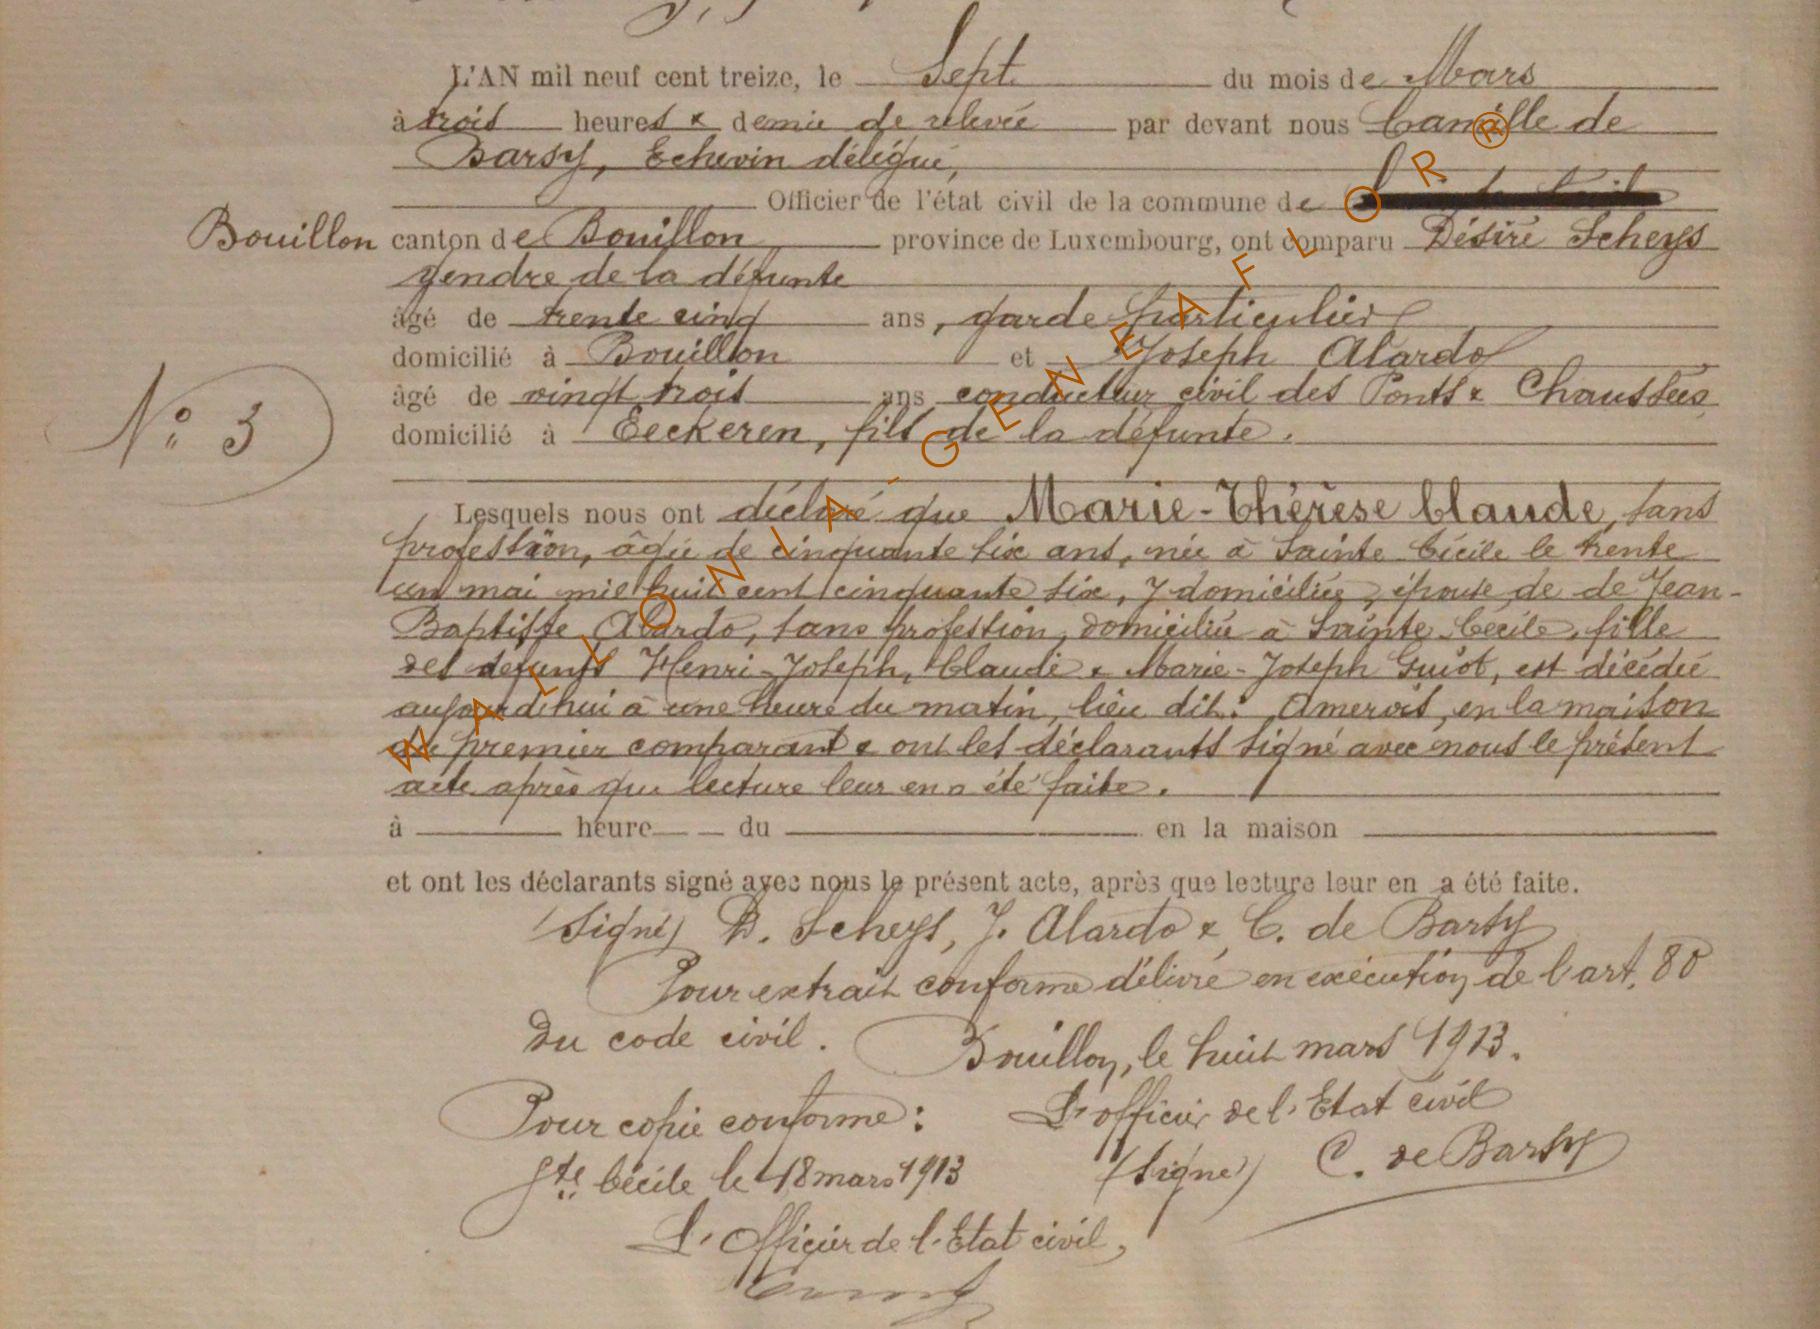 L'AN mil neuf cent treize, le Sept du mois de Mars
à trois heures & demie de relevée par devant nous Camille de
Barsy, Echevin délégué,
Officier de l'état civil de la commune de
Bouillon canton de Bouillon province de Luxembourg, ont comparu Désiré Scheys
gendre de la défunte
âgé de trente cinq ans, garde particulier
domicilié à Bouillon et Joseph Alardo
âgé de vingt trois ans conducteur civil des Ponts & Chaussées
domicilié à Eeckeren, fils de la défunte.
N° 3
Lesquels nous ont déclaré que Marie-Thérèse Claude, sans
profession, âgée de cinquante six ans, née à Sainte Cécile le trente
un mai mil huit cent cinquante six, y domiciliée, épouse de de Jean-
Baptiste Alardo, sans profession, domicilié à Sainte Cécile, fille
des defunts Henri-Joseph, Claude & Marie-Joseph Guiot, est décédée
aujourd'hui à une heure du matin, lieu dit: Amerois, en la maison
du premier comparant & ont les déclarants signé avec nous le présent
acte après que lecture leur en a été faite.
à heure du en la maison
et ont les déclarants signé avec nous le présent acte, après que lecture leur en a été faite.
(signé) D. Scheys, J. Alardo & C. de Barsy
Pour extrait conforme délivré en exécution de l'art. 80
du code civil. Bouillon, le huit mars 1913.
Pour copie conforme: L'officier de l'Etat civil
Ste Cécile le 18 mars 1913 (signé) C. de Barsy
L'Officier de l'Etat civil,
WALLONIA-GENEAFLOR®